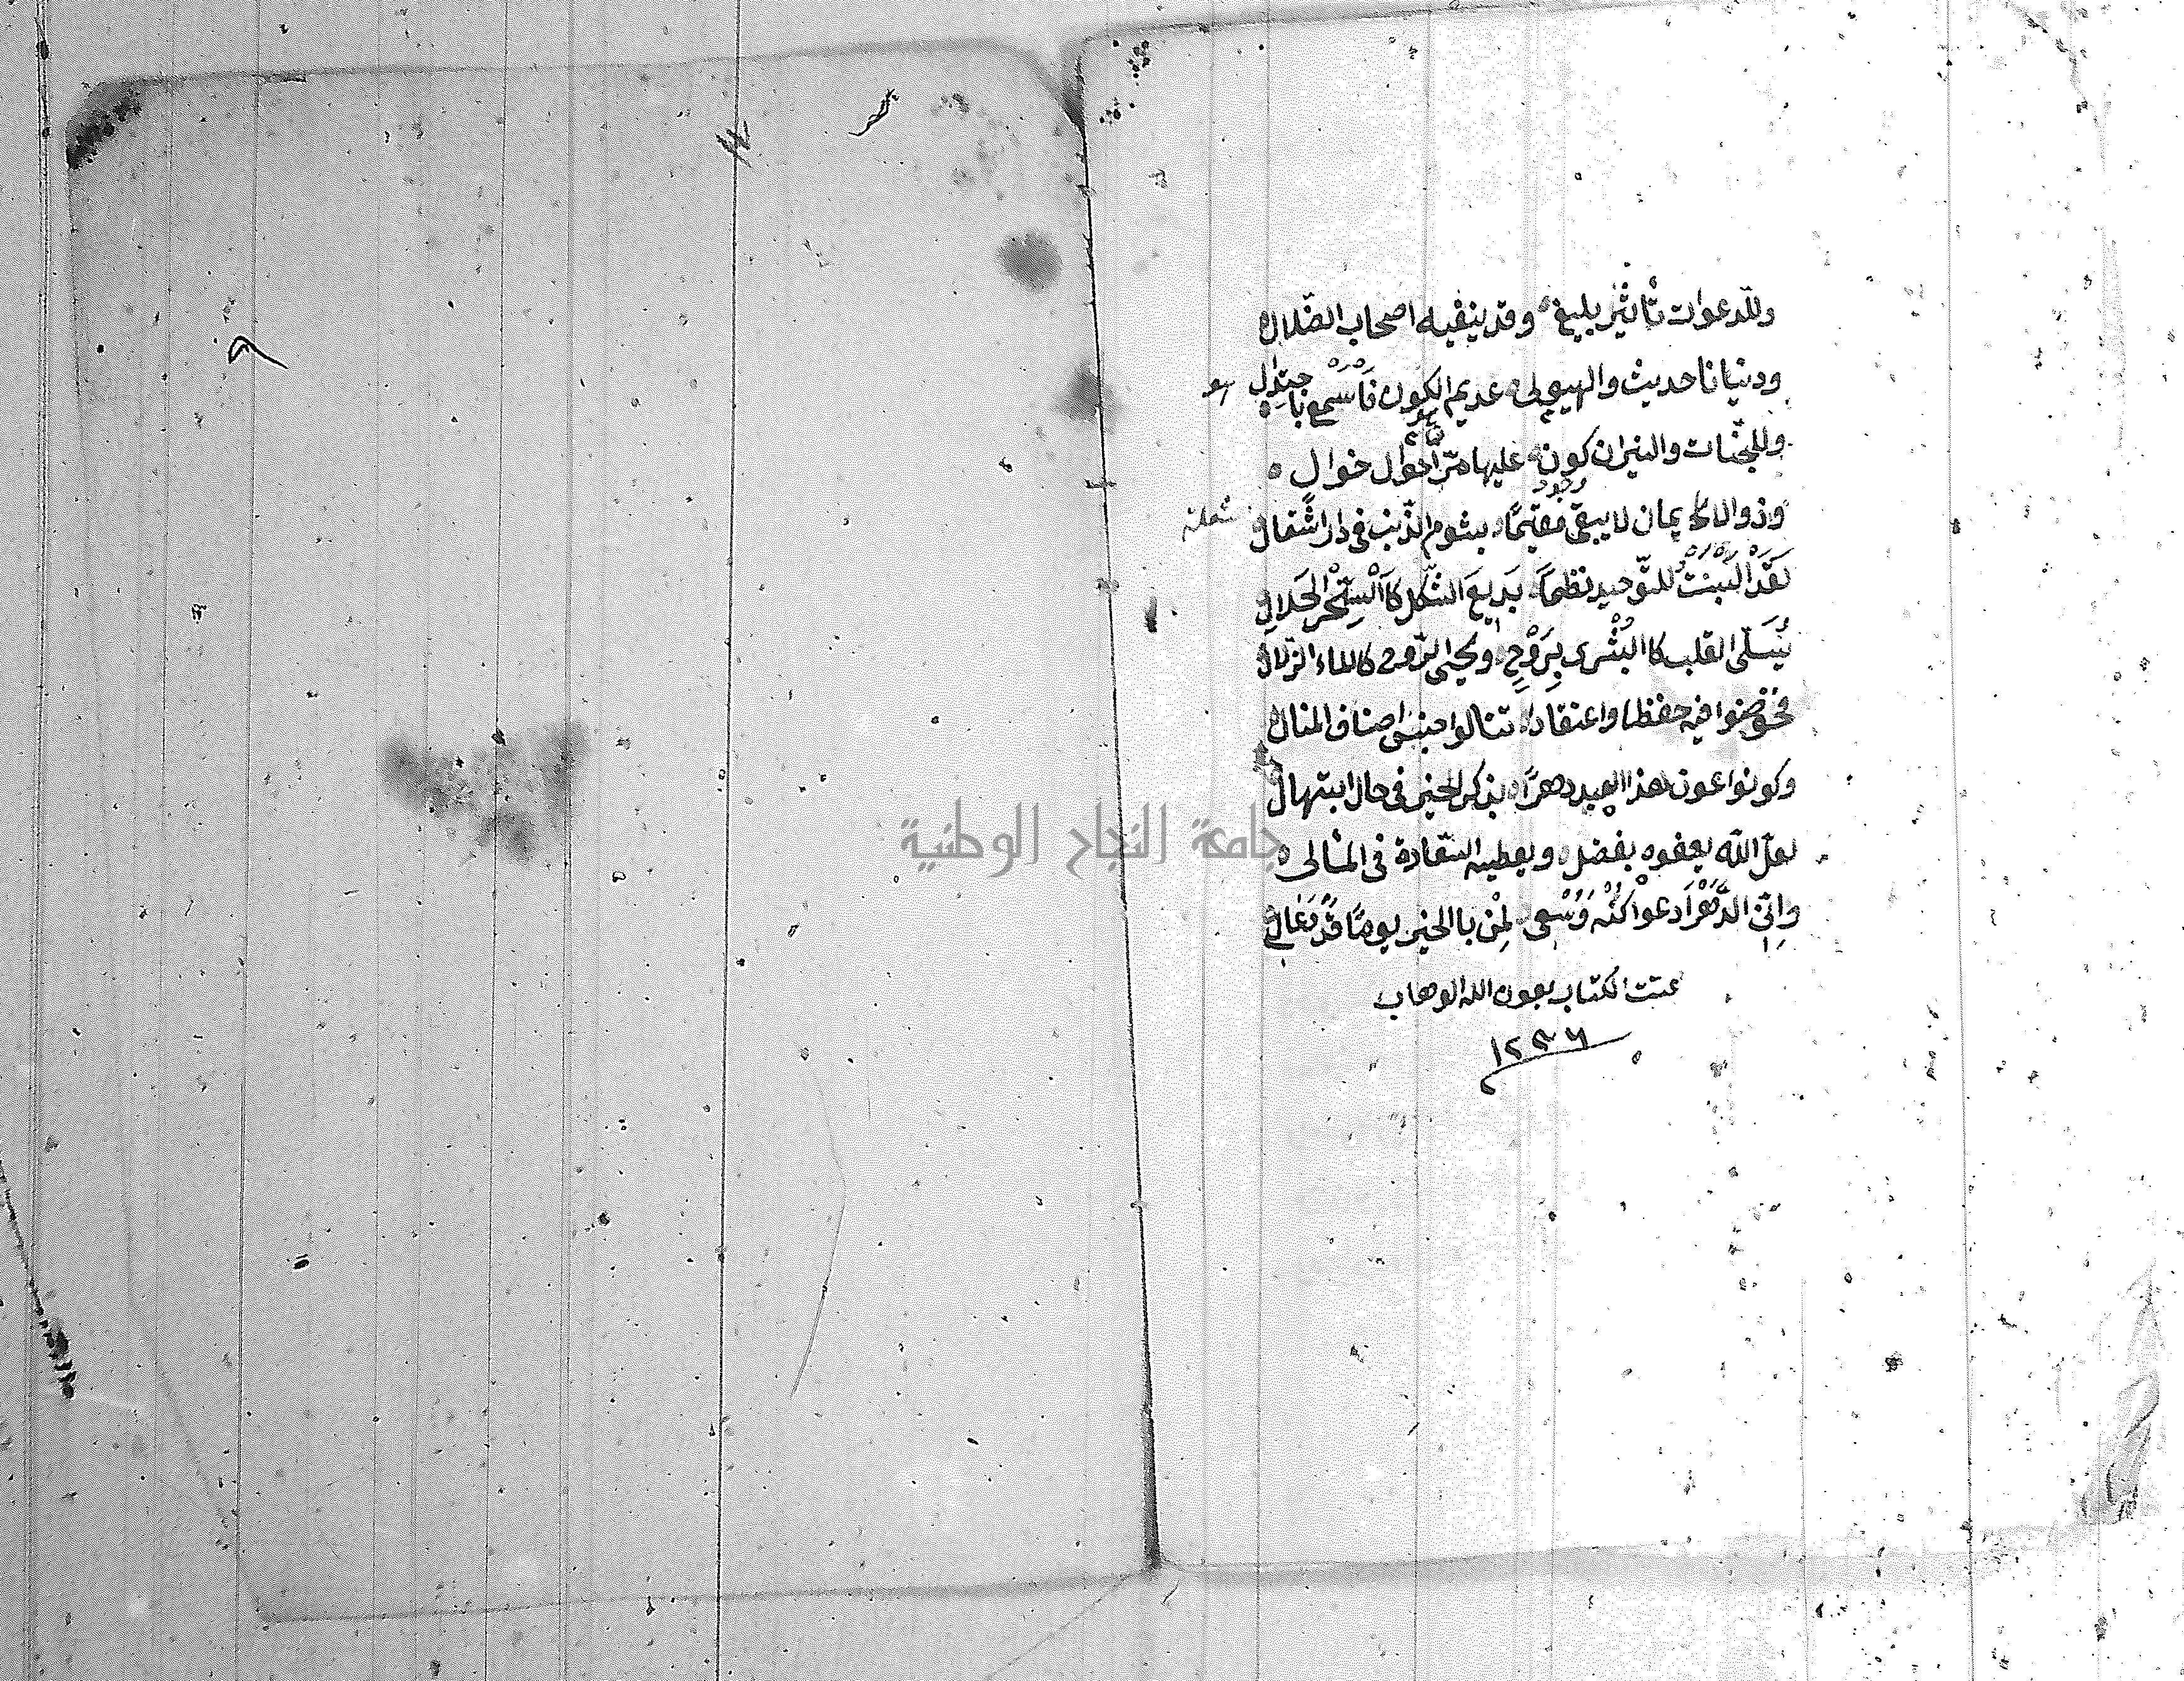 وللدعوات تأثير بليغ وقد ينفيه اصحاب الضلال
ودنيانا حديث والهيولى عديم الكون فاسمع باجتذل
وللجنات والنيران كون عليها مرّ احوال خوال
وذو الايمان لا يبقى مقيما بشوم الذنب في دار اشتغال
لقد البست للتوحيد نظما بديع الشكل كالسحر الحلال
يسلى القلب كالبشرى بروح ويحيى الروح كالماء الزلال
فخوضوا فيه حفظا واعتقادا تنالوا جنس اصناف المنال
وكونوا عون هذا العبد دهرا بذكر الخير في حال ابتهال
لعل الله يعفوه بفضل ويعطيه السعادة في المـٔالى
وانى الدهر ادعوا كنه وسعى لمن بالخير يوما قد دعالى
تمت الكتاب بعون الله الوهاب
١٢٣٦
جامعة النجاح الوطنية